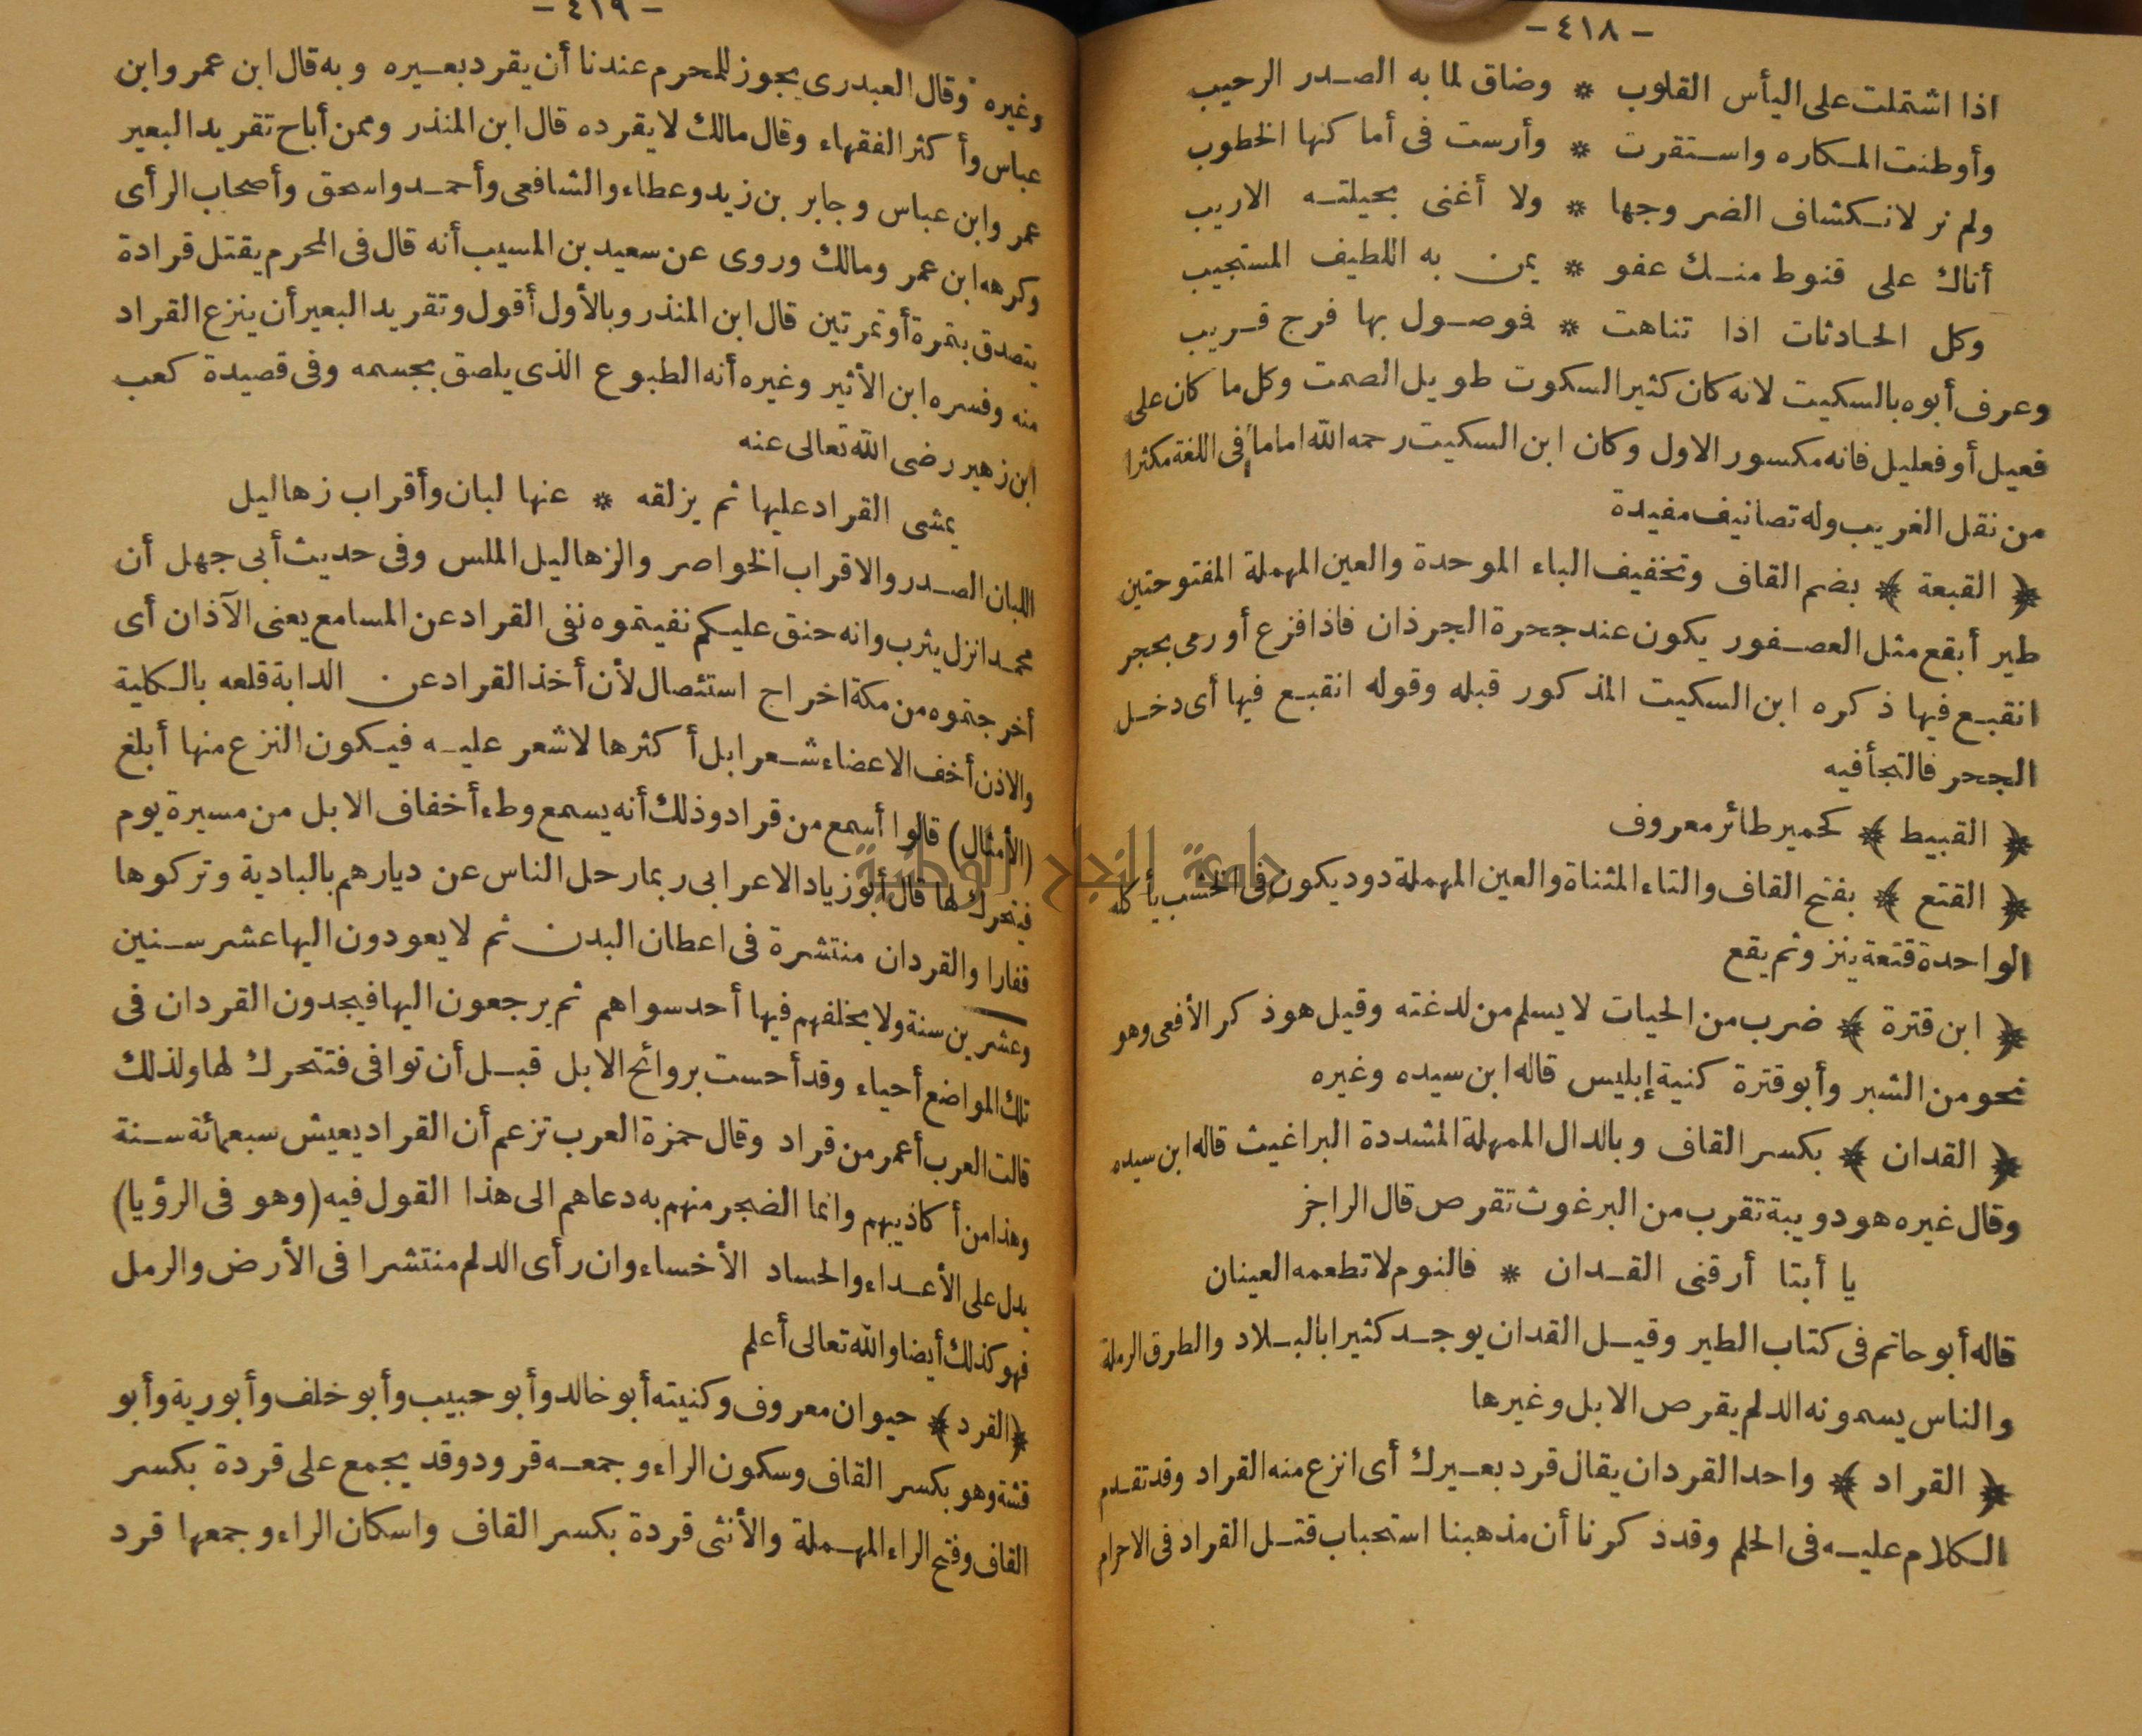 — ٤١٨ —
اذا اشتملت على اليأس القلوب * وضاق لما به الصدر الرحيب
وأوطنت المكاره واستقرت * وأرست فى أماكنها الخطوب
ولم نر لانكشاف الضر وجها * ولا أغنى بحيلته الاريب
أتاك على قنوط منك عفو * يمن به اللطيف المستجيب
وكل الحادثات اذا تناهت * فوصول بها فرج قريب
وعرف أبوه بالسكيت لانه كان كثير السكوت طويل الصمت وكل ما كان على
فعيل أو فعليل فانه مكسور الاول وكان ابن السكيت رحمه الله اماما فى اللغة مكثرا
من نقل الغريب وله تصانيف مفيدة
﴿ القبعة ﴾ بضم القاف وتخفيف الباء الموحدة والعين المهملة المفتوحتين
طير أبقع مثل العصفور يكون عند جحرة الجرذان فاذا فزع أو رمى بحجر
انقبع فيها ذكره ابن السكيت المذكور قبله وقوله انقبع فيها أى دخل
الجحر فالتجأ فيه
﴿ القبيط ﴾ كحمير طائر معروف
﴿ القتع ﴾ بفتح القاف والتاء المثناة والعين المهملة دود يكون فى الخشب يأكله
الواحدة قتعة ينزو ثم يقع
﴿ ابن قترة ﴾ ضرب من الحيات لا يسلم من لدغته وقيل هو ذكر الأفعى وهو
نحو من الشبر وأبو قترة كنية إبليس قاله ابن سيده وغيره
﴿ القدان ﴾ بكسر القاف وبالدال المهملة المشددة البراغيث قاله ابن سيده
وقال غيره هو دويبة تقرب من البرغوث تقرص قال الراجز
يا أبتا أرقنى القدان * فالنوم لا تطعمه العينان
قاله أبو حاتم فى كتاب الطير وقيل القدان يوجد كثيرا بالبلاد والطرق الرملة
والناس يسمونه الدلم يقرص الابل وغيرها
﴿ القراد ﴾ واحد القردان يقال قرد بعيرك أى انزع منه القراد وقد تقدم
الكلام عليه فى الحلم وقد ذكرنا أن مذهبنا استحباب قتل القراد فى الاحرام
— ٤١٩ —
وغيره وقال العبدرى يجوز للمحرم عندنا أن يقرد بعيره وبه قال ابن عمر وابن
عباس وأكثر الفقهاء وقال مالك لا يقرده قال ابن المنذر وممن أباح تقريد البعير
عمر وابن عباس وجابر بن زيد وعطاء والشافعى وأحمد واسحق وأصحاب الرأى
وكرهه ابن عمر ومالك وروى عن سعيد بن المسيب أنه قال فى المحرم يقتل قرادة
يتصدق بتمرة أو تمرتين قال ابن المنذر وبالأول أقول وتقريد البعير أن ينزع القراد
منه وفسره ابن الأثير وغيره أنه الطبوع الذى يلصق بجسمه وفى قصيدة كعب
ابن زهير رضى الله تعالى عنه
يمشى القراد عليها ثم يزلقه * عنها لبان وأقراب زهاليل
اللبان الصدر والاقراب الخواصر والزهاليل الملس وفى حديث أبى جهل أن
محمدا نزل يثرب وانه حنق عليكم نفيتموه نفى القراد عن المسامع يعنى الآذان أى
أخرجتموه من مكة اخراج استئصال لأن أخذ القراد عن الدابة قلعه بالكلية
والاذن أخف الاعضاء شعرا بل أكثرها لا شعر عليه فيكون النزع منها أبلغ
(الأمثال) قالوا أسمع من قراد وذلك أنه يسمع وطء أخفاف الابل من مسيرة يوم
فيتحرك لها قال أبو زياد الاعرابى ربما رحل الناس عن ديارهم بالبادية وتركوها
قفارا والقردان منتشرة فى اعطان البدن ثم لا يعودون اليها عشر سنين
وعشرين سنة ولا يخلفهم فيها أحد سواهم ثم يرجعون اليها فيجدون القردان فى
تلك المواضع أحياء وقد أحست بروائح الابل قبل أن توافى فتتحرك لها ولذلك
قالت العرب أعمر من قراد وقال حمزة العرب تزعم أن القراد يعيش سبعمائة سنة
وهذا من أكاذيبهم وانما الضجر منهم به دعاهم الى هذا القول فيه (وهو فى الرؤيا)
يدل على الأعداء والحساد الأخساء وان رأى الدلم منتشرا فى الأرض والرمل
فهو كذلك أيضا والله تعالى أعلم
﴿القرد﴾ حيوان معروف وكنيته أبو خالد وأبو حبيب وأبو خلف وأبو رية وأبو
قشة وهو بكسر القاف وسكون الراء وجمعه قرود وقد يجمع على قردة بكسر
القاف وفتح الراء المهملة والأنثى قردة بكسر القاف واسكان الراء وجمعها قرد
جامعة النجاح الوطنية